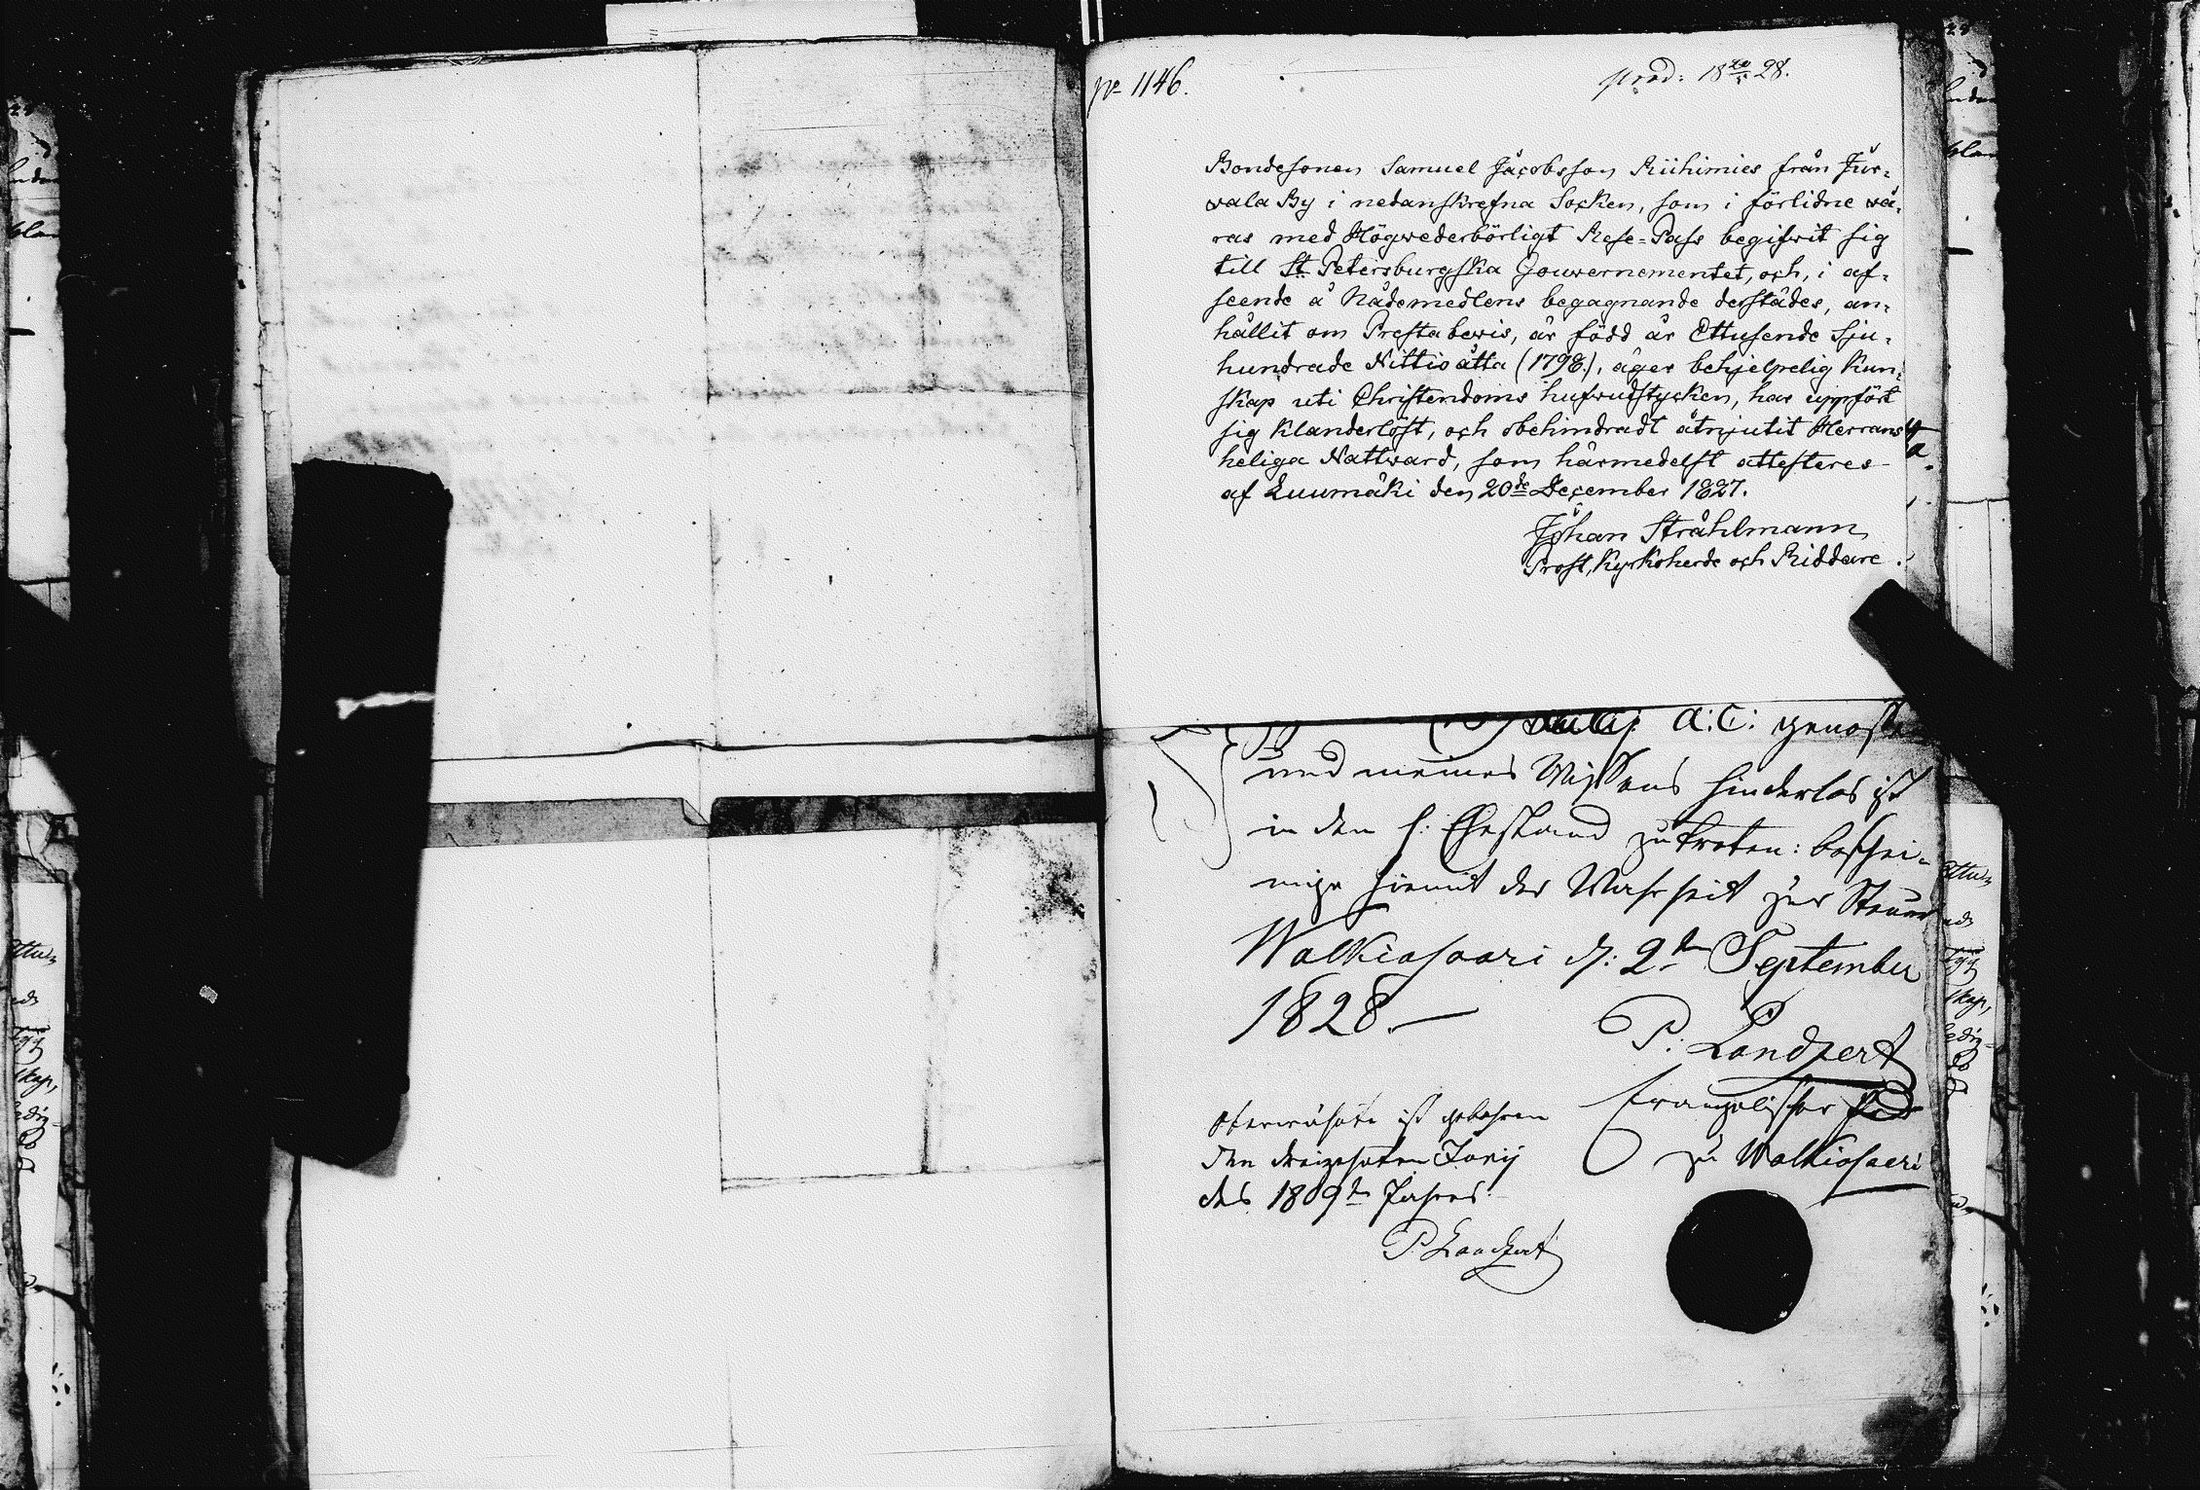 No 1146.
prod: 18 20/5 28.
Bondesonen Samuel Jacobsson Riihimies från Jur-
vala By i nedanskrefna Socken, som i förlidne vå-
ras med Högvederbörligt Rese-Pass begifvit sig
till St Petersburgska Gouvernementet, och, i af-
seende å Nådemedlens begagnande derstädes, an-
hållit om Prestabevis, är född år Ettusende Sju-
hundrade Nittio åtta (1798.), äger behjelpelig Kun-
skap uti Christendoms hufvudstycken, har uppfört
sig Klanderlöst, och obehindradt åtnjutit Herrans
heliga Nattvard, som härmedelst attesteres
af Luumäki den 20de December 1827.
Johan Stråhlmann
Prost, Kyrkoherde och Riddare.
A: C: genoss
und meines Wissens hinderlos ist
in den h: Ehestand zu treten: beschei-
nige hiemit der Wahrheit zur Steuer
Walkiasaari d: 2ten September
1828.—
P: Landzert
Evangelischer
zu Walkiasaari
Oberwähnte ist gebohren
den dreizehnten Junij
des 1809ten Jahres.
P. Landzert